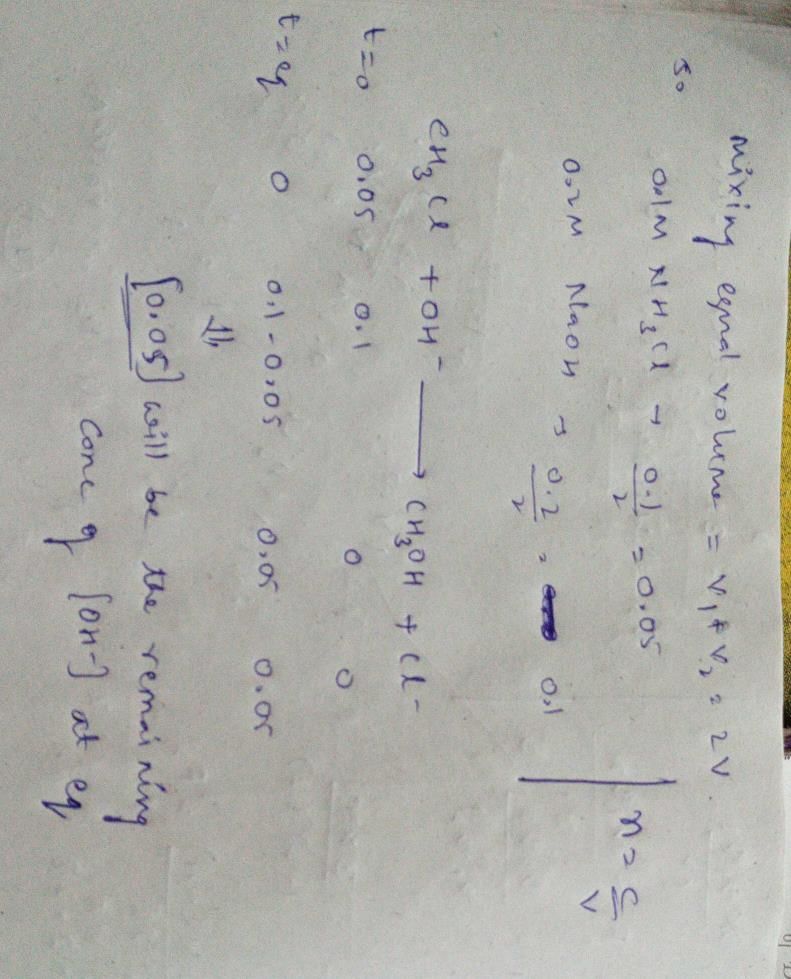 Mixing equal volume = V₁ + V₂ = 2V
So 0.1M NH₃Cl → 0.1/2 = 0.05
0.2M NaOH → 0.2/2 = 0.1
n = C/V
CH₃Cl + OH⁻ ⟶ CH₃OH + Cl⁻
t=0 0.05 0.1 0 0
t=eq 0 0.1-0.05 0.05 0.05
⇓
[0.05] will be the remaining
conc of [OH-] at eq